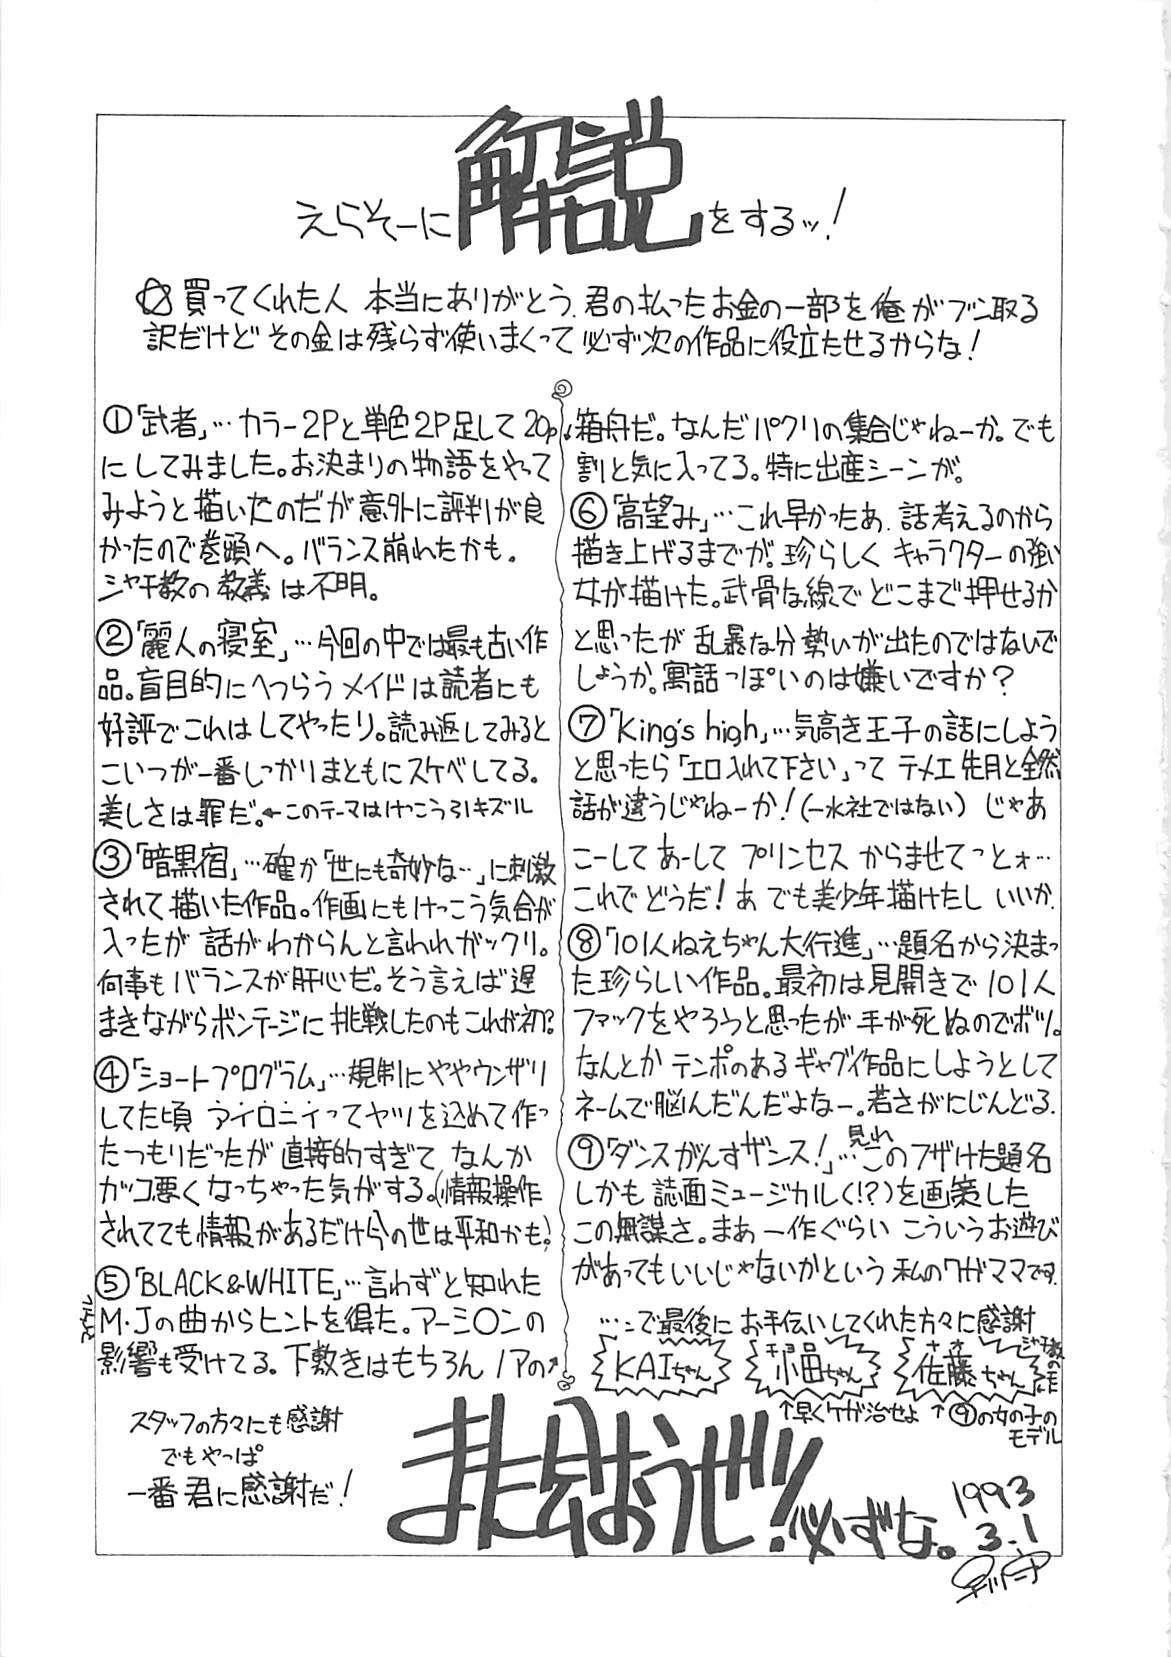 えらそーに解説をするッ!
☆買ってくれた人 本当にありがとう. 君の払ったお金の一部を俺がブン取る
訳だけど その金は残らず使いまくって 必ず次の作品に役立たせるからな!
①「武者」…カラー2Pと単色2P足して20p
にしてみました。お決まりの物語をやって
みようと描いたのだが意外に評判が良
かったので巻頭へ。バランス崩れたかも。
シャチ教の教義は不明。
②「麗人の寝室」…今回の中では最も古い作
品。盲目的にへつらうメイドは読者にも
好評でこれはしてやったり。読み返してみると
こいつが一番しっかりまともにスケベしてる。
美しさは罪だ。←このテーマはけっこう引キズル
③「暗黒宿」…確か「世にも奇妙な…」に刺激
されて描いた作品。作画にもけっこう気合が
入ったが 話がわからんと言われガックリ。
何事もバランスが肝心だ。そう言えば遅
まきながらボンテージに挑戦したのもこれが初?
④「ショートプログラム」…規制にややウンザリ
してた頃 アイロニィってヤツを込めて作っ
たつもりだったが 直接的すぎて なんか
カッコ悪くなっちゃった気がする。(情報操作
されてても情報があるだけ今の世は平和かも)
⑤「BLACK&WHITE」…言わずと知れた
M・Jの曲からヒントを得た。アーミ○ンの
影響も受けてる。下敷きはもちろんノアの↗
↓箱舟だ。なんだパクリの集合じゃねーか。でも
割と気に入ってる。特に出産シーンが。
⑥「高望み」…これ早かったあ. 話考えるのから
描き上げるまでが. 珍らしく キャラクターの強い
女が描けた。武骨な線で どこまで押せるか
と思ったが 乱暴な分 勢いが出たのではないで
しょうか。寓話っぽいのは嫌いですか?
⑦「King's high」…気高き王子の話にしよう
と思ったら「エロ入れて下さい」って テメエ先月と全然
話が違うじゃねーか!(一水社ではない) じゃあ
こーして あーして プリンセス からませてっとォ…
これで どうだ! あ でも美少年描けたし いいか.
⑧「101人ねえちゃん大行進」…題名から決まっ
た珍らしい作品。最初は見開きで101人
ファックをやろうと思ったが 手が死ぬのでボツ。
なんとか テンポのあるギャグ作品にしようとして
ネームで脳んだんだよなー。若さがにじんどる.
⑨「ダンスがんすザンス!」…見れこのフザけた題名
しかも 誌面ミュージカル(!?)を画策した
この無謀さ。まあ 一作ぐらい こういうお遊び
があってもいいじゃないかという 私のワガママです.
…こで最後に お手伝いしてくれた方々に感謝
KAIちゃん 小田ちゃん 佐藤ちゃん
↑早くケガ治せよ ↑⑨の女の子の
モデル
スタッフの方々にも感謝
でもやっぱ
一番 君に感謝だ!
また会おうぜッ!! 必ずな。
1993
3.1